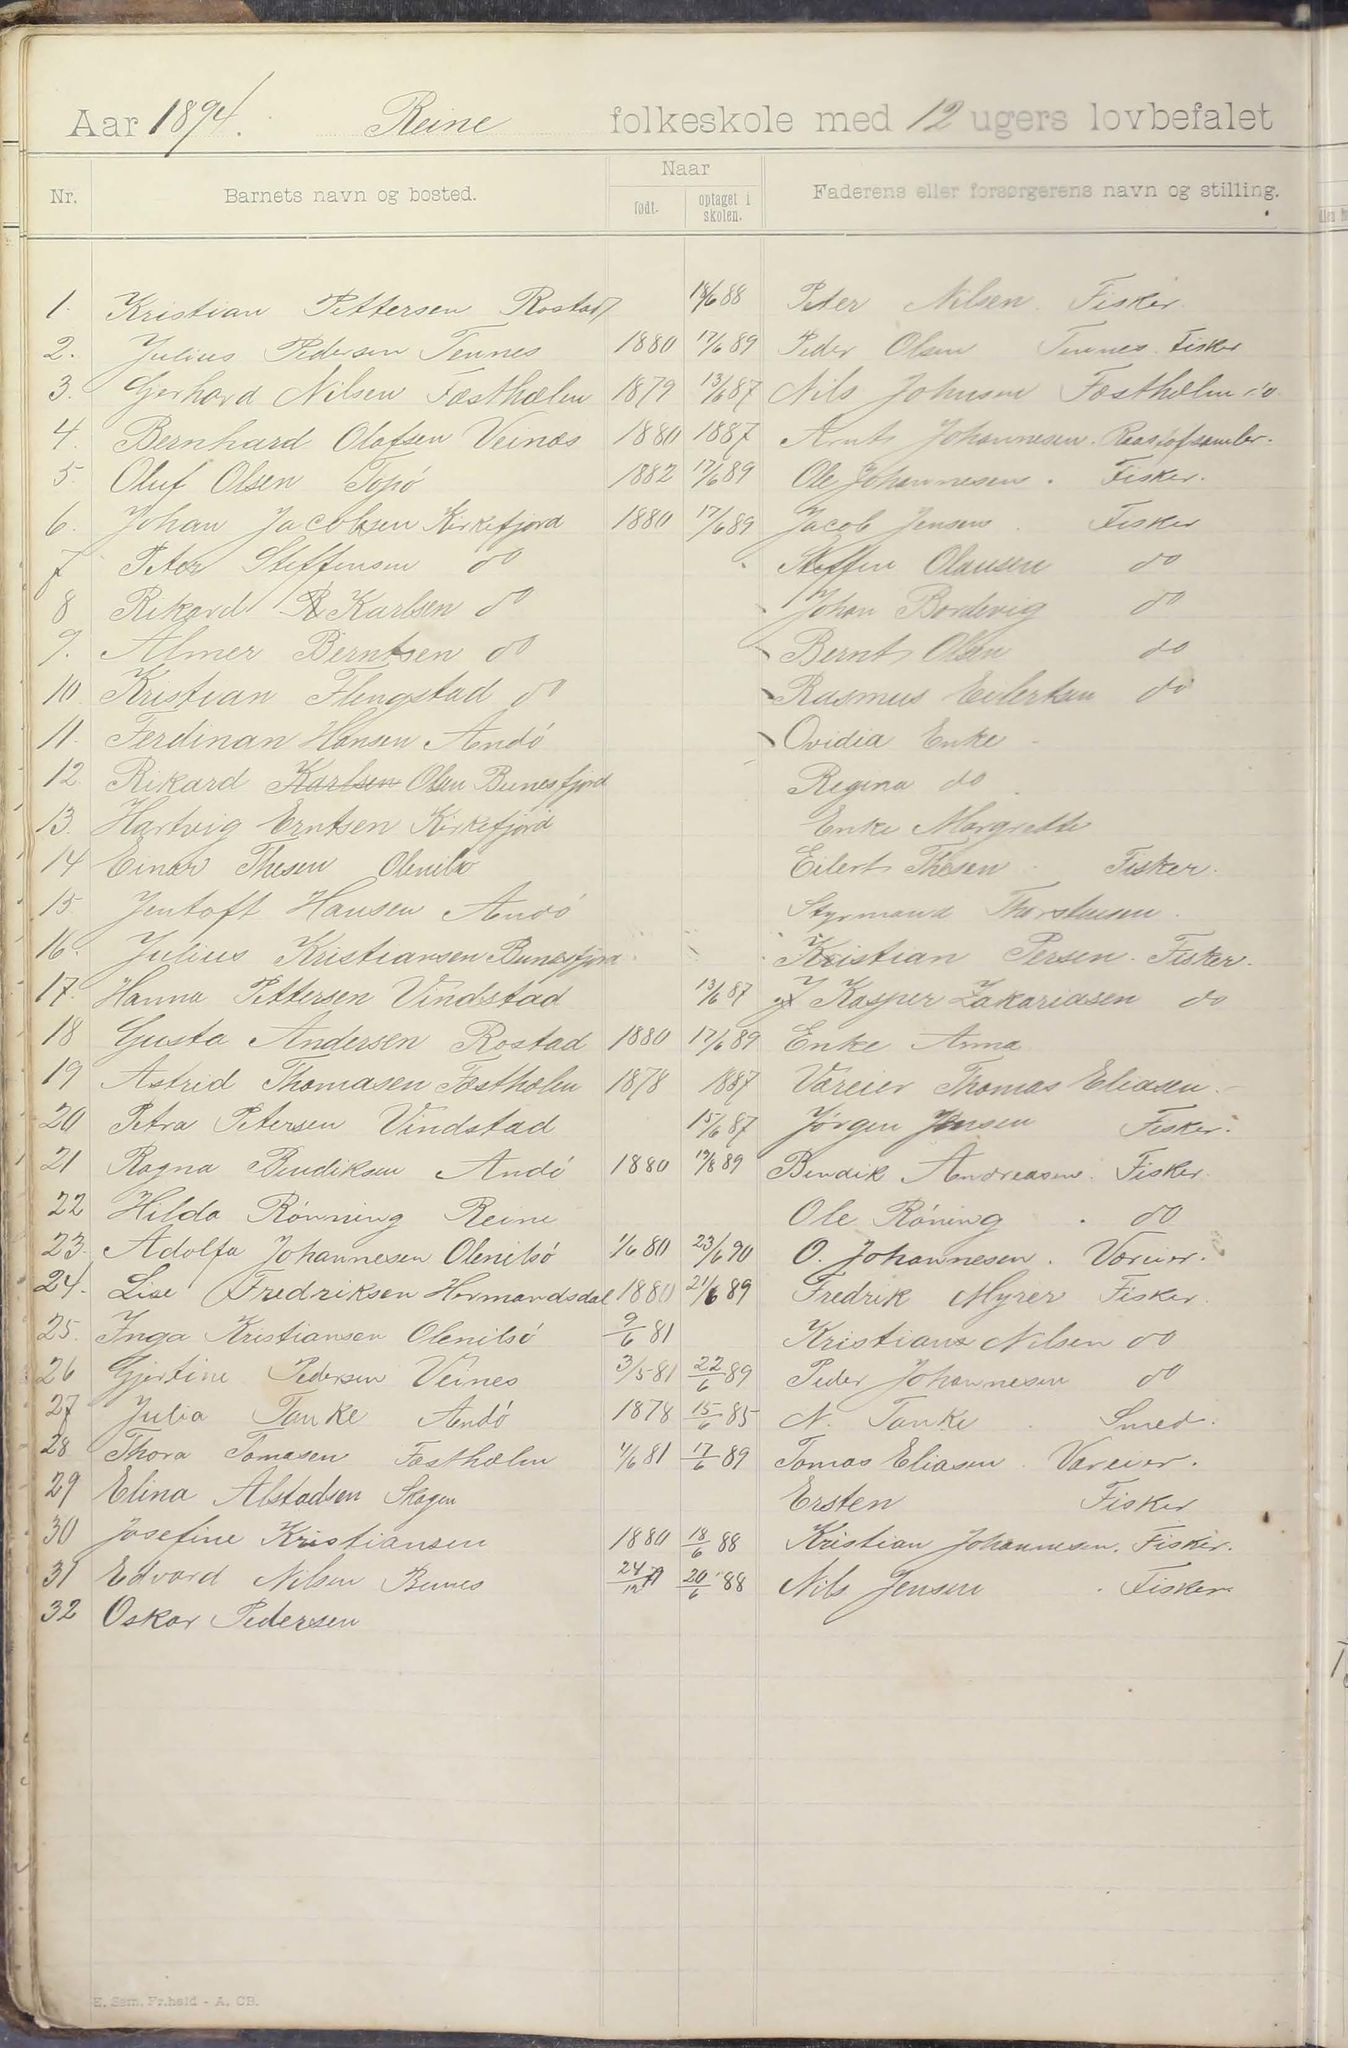 Aar 1894. Reine folkeskole med 12 ugers lovbefalet
Nr. Barnets navn og bosted. Naar født. optaget i skolen. Faderens eller forsørgerens navn og stilling.
1. Kristian Pettersen Rostad 18/6 88 Peter Nilsen. Fisker.
2. Julius Pedersen Tennes 1880 17/6 89 Peder Olsen Tennes. Fisker
3. Gerhard Nilsen Fæsthælen 1879 13/6 87 Nils Johnsen Fæsthælen do
4. Bernhard Olafsen Veinæs 1880 1887 Arnt Johannesen.
5. Oluf Olsen Topö 1882 17/6 89 Ole Johannesen. Fisker.
6. Johan Jacobsen Kirkefjord 1880 17/6 89 Jacob Jensen. Fisker
7 Peter Steffensen do Steffen Olausen do
8 Rikard Karlsen do Johan Bordevig do
9. Almer Berntsen do Bernt Olsen do
10 Kristian Flengstad do Rasmus Eilertsen do
11. Ferdinan Hansen Andö Ovidia Enke
12. Rikard Karlsen Olsen Bunesfjord Regina do
13. Hartvig Erntsen Kirkefjord Enke Margrethe
14 Einar Thesen Olenilsö Eilert Thesen Fisker.
15. Jentoft Hansen Andö Styrmand Thorstensen.
16. Julius Kristiansen Bunesfjord Kristian Persen. Fisker.
17. Hanna Pettersen Vindstad 13/6 87 J Kasper Zakariasen do
18 Gusta Andersen Rostad 1880 17/6 89 Enke Anna
19 Astrid Thomasen Fæsthælen 1878 1887 Væreier Thomas Eliasen.
20 Petra Petersen Vindstad 15/6 87 Jørgen Jensen Fisker.
21 Ragna Bendiksen Andö 1880 19/8 89 Bendik Andreasen. Fisker.
22 Hilda Rönning Reine Ole Röning. do
23. Adolfa Johannesen Olenilsö 1/6 80 23/6 90 O. Johannesen. Væreier.
24. Lise Fredriksen Hermandsdal 1880 21/6 89 Fredrik Myrer Fisker.
25. Inga Kristiansen Olenilsö 9/6 81 Kristian Nilsen do
26 Gjertine Pedersen Veines 3/5 81 22/6 89 Peder Johannesen do
27 Julia Tanke Andö 1878 15/6 85 N. Tanke. Smed.
28 Thora Tomasen Fæsthælen 1/6 81 17/6 89 Tomas Eliasen. Væreier.
29 Elina Alstadsen Skagen Ersten Fisker
30 Josefine Kristiansen 1880 18/6 88 Kristian Johannesen. Fisker.
31 Edvard Nilsen Bunes 24/12 79 20/6 88 Nils Jensen. Fisker.
32 Oskar Pedersen
E. Sem, Fr.hald - A. CB.